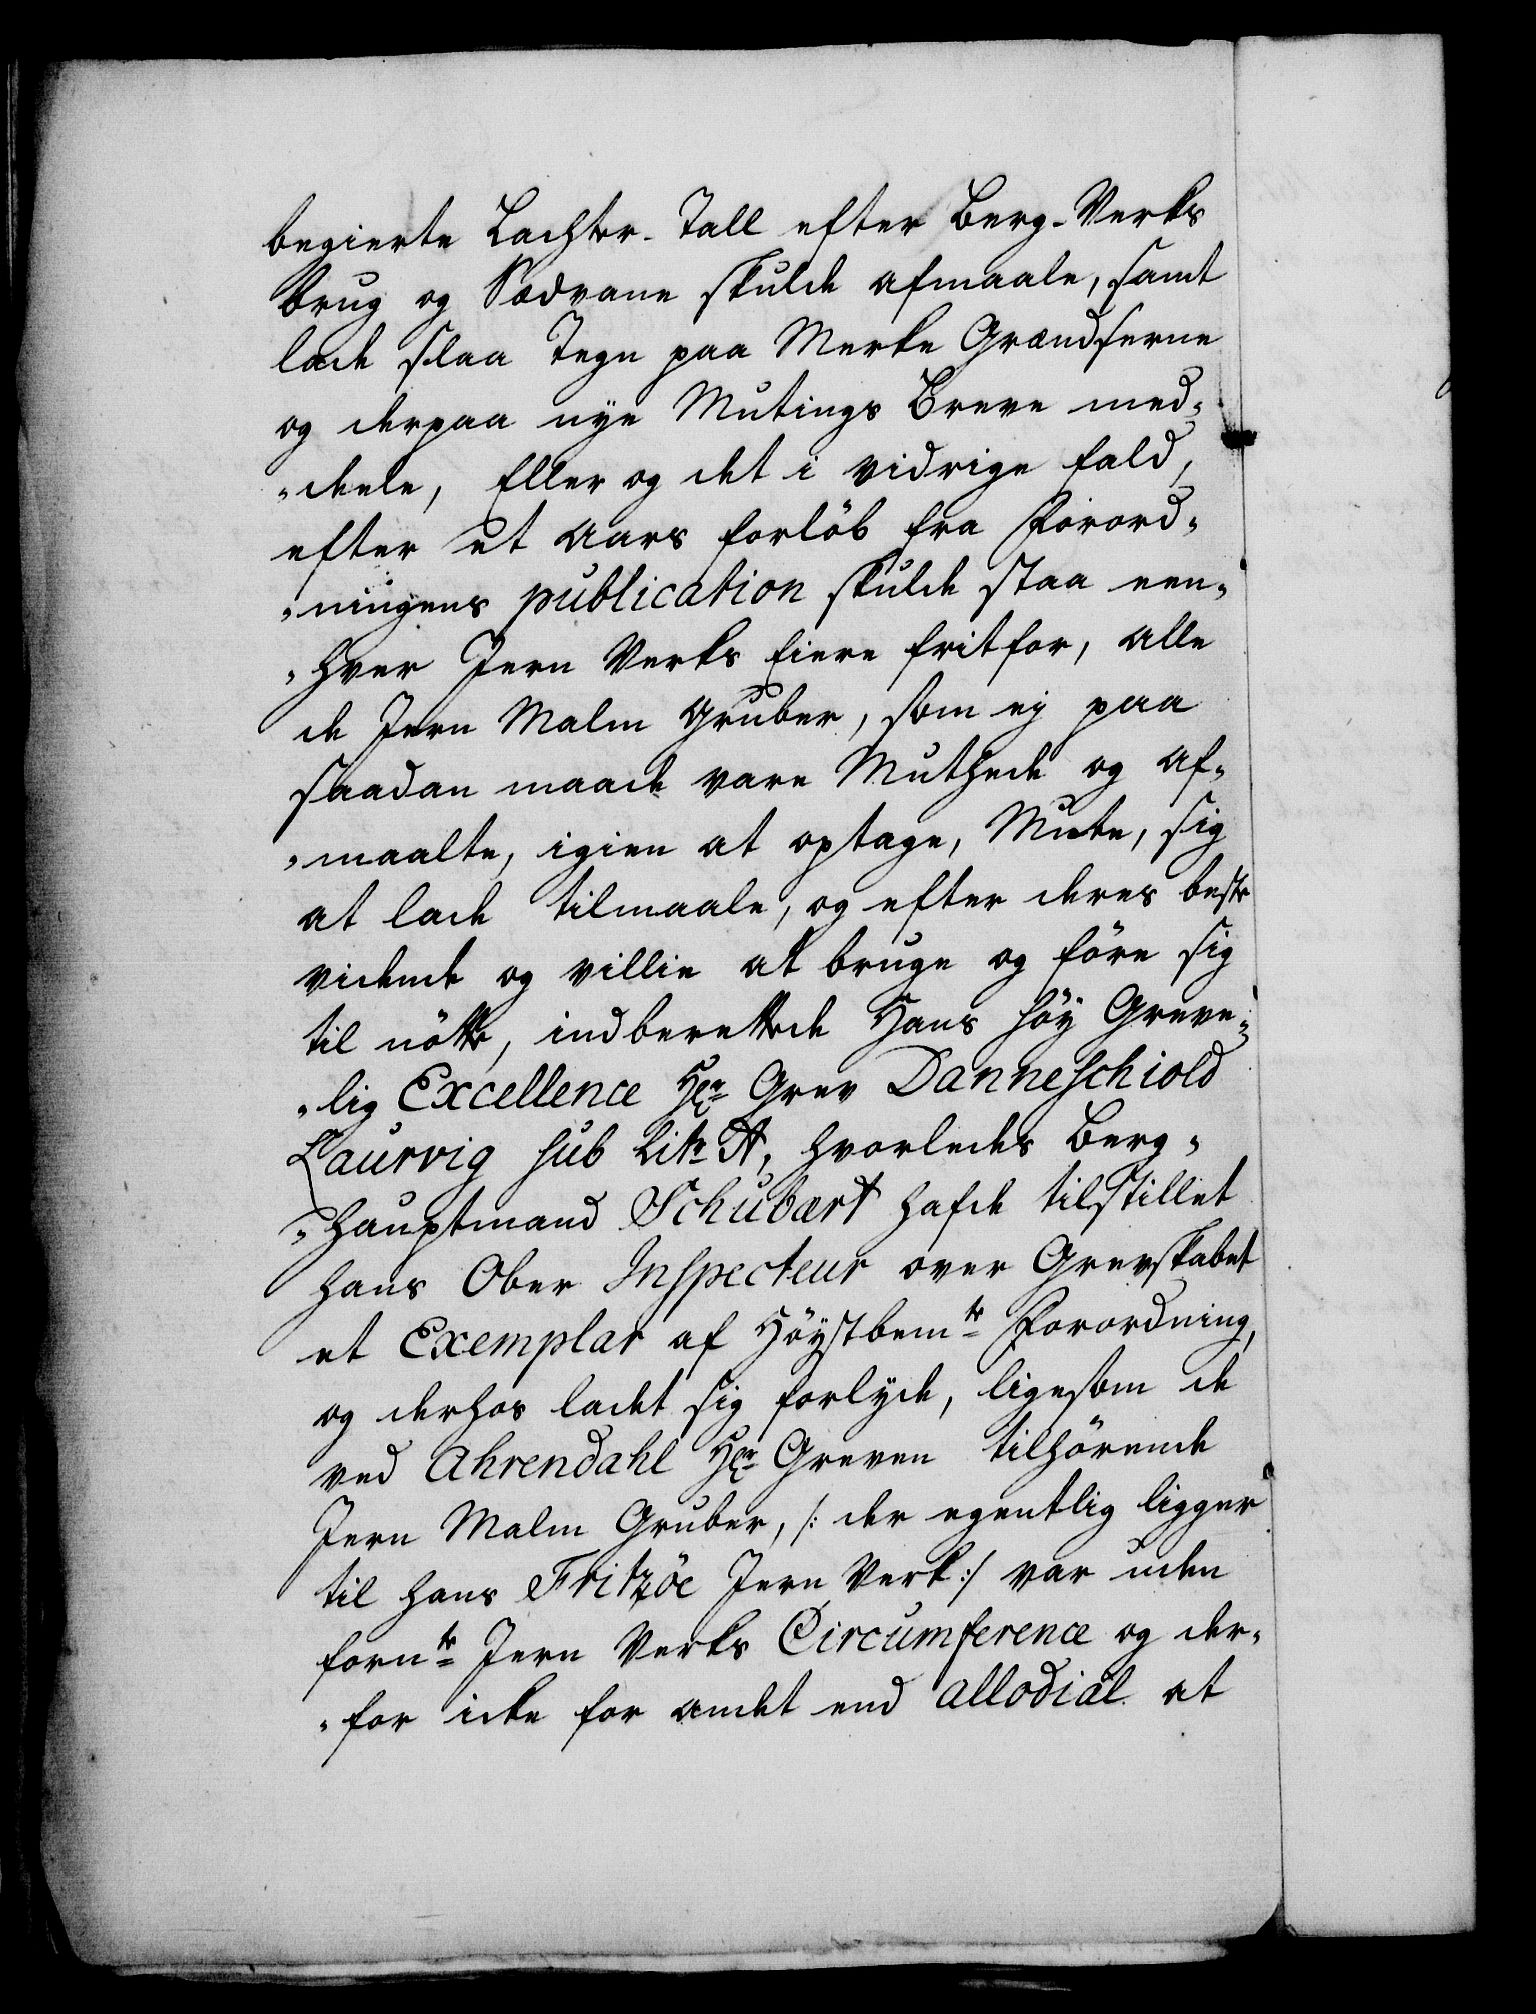 begierte Lachter-Tall efter Berg-Verks
brug og Sædvane skulde afmaale, samt
lade slaa Tegn paa Merke Grændserne
og derpaa nye Mutings Breve med-
"deele, Eller og det i vidrige fald,
efter et Aars forlöb fra Forord-
"ningens publication skulde staa een-
"hver Jern Verks Eiere frit for, alle
de Jern Malm Gruber, som ej paa
saadan maade vare Muthede og af-
"maalte, igien at optage, Mute, sig
at lade tilmaale, og efter deres beste
vidende og villie at bruge og före sig
til nötte, indberettede Hans höy Greve-
"lig Excellence Hr Grev Danneschiold
Laurvig sub Litr A, hvorledes Berg-
"Hauptmand Schubart hafde tilstillet
hans Ober Inspecteur over Grevskabet
et Exemplar af Höystbemte Forordning,
og derhos ladet sig forlyde, ligesom de
ved Ahrendahl Hr Greven tilhörende
Jern Malm Gruber, /: der egentlig ligger
til hans Fritzöe Jern Verk :/ var uden
fornte Jern Verks Circumference og der-
"for icke for andet end allodial at